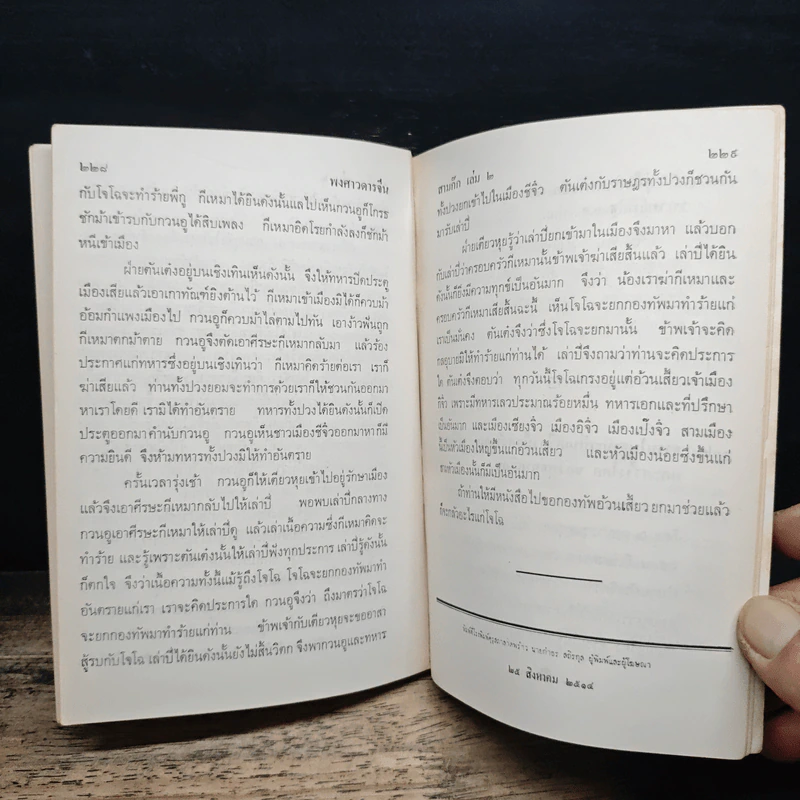 ๒๒๘
พงศาวดารจีน
กับโจโฉจะทำร้ายพี่กู ก็เหมาได้ยินดังนั้นแลไปเห็นกวนอูก็โกรธ
ชักม้าเข้ารบกับกวนอูได้สิบเพลง ก็เหมาอิดโรยกำลังลงก็ชักม้า
หนีเข้าเมือง
ฝ่ายตันเต๋งอยู่บนเชิงเทินเห็นดังนั้น จึงให้ทหารปิดประตู
เมืองเสียแล้วเอาเกาทัณฑ์ยิงต้านไว้ ก็เหมาเข้าเมืองมิได้ก็ควบม้า
อ้อมกำแพงเมืองไป กวนอูก็ควบม้าไล่ตามไปทัน เอาง้าวฟันถูก
ก็เหมาตกม้าตาย กวนอูจึงตัดเอาศีรษะก็เหมากลับมา แล้วร้อง
ประกาศแก่ทหารซึ่งอยู่บนเชิงเทินว่า ก็เหมาคิดร้ายต่อเรา เราก็
ฆ่าเสียแล้ว ท่านทั้งปวงยอมจะทำการด้วยเราก็ให้ชวนกันออกมา
หาเราโดยดี เรามิได้ทำอันตราย ทหารทั้งปวงได้ยินดังนั้นก็เปิด
ประตูออกมาคำนับกวนอู กวนอูเห็นชาวเมืองชีจิ๋วออกมาหาก็มี
ความยินดี จึงห้ามทหารทั้งปวงมิให้ทำอันตราย
ครั้นเวลารุ่งเช้า กวนอูก็ให้เตียวหุยเข้าไปอยู่รักษาเมือง
แล้วจึงเอาศีรษะก็เหมากลับไปให้เล่าปี่ พอพบเล่าปี่กลางทาง
กวนอูเอาศีรษะก็เหมาให้เล่าปี่ดู แล้วเล่าเนื้อความซึ่งก็เหมาคิดจะ
ทำร้าย และรู้เพราะตันเต๋งนั้นให้เล่าปี่ฟังทุกประการ เล่าปี่รู้ดังนั้น
ก็ตกใจ จึงว่าเนื้อความทั้งนี้แม้รู้ถึงโจโฉ โจโฉจะยกกองทัพมาทำ
อันตรายแก่เรา เราจะคิดประการใด กวนอูจึงว่า ถึงมาตรว่าโจโฉ
จะยกกองทัพมาทำร้ายแก่ท่าน ข้าพเจ้ากับเตียวหุยจะขออาสา
สู้รบกับโจโฉ เล่าปี่ได้ยินดังนั้นยังไม่สิ้นวิตก จึงพากวนอูและทหาร
สามก๊ก เล่ม ๒
๒๒๙
ทั้งปวงยกเข้าไปในเมืองชีจิ๋ว ตันเต๋งกับราษฎรทั้งปวงก็ชวนกัน
มารับเล่าปี่
ฝ่ายเตียวหุยรู้ว่าเล่าปี่ยกเข้ามาในเมืองจึงมาหา แล้วบอก
กับเล่าปี่ว่าครอบครัวก็เหมานั้นข้าพเจ้าฆ่าเสียสิ้นแล้ว เล่าปี่ได้ยิน
ดังนั้นก็ยิ่งมีความทุกข์เป็นอันมาก จึงว่า น้องเราฆ่าก็เหมาและ
ครอบครัวก็เหมาเสียสิ้นฉะนี้ เห็นโจโฉจะยกกองทัพมาทำร้ายแก่
เราเป็นมั่นคง ตันเต๋งจึงว่าซึ่งโจโฉจะยกมานั้น ข้าพเจ้าจะคิด
กลอุบายมิให้ทำร้ายแก่ท่านได้ เล่าปี่จึงถามว่าท่านจะคิดประการ
ใด ตันเต๋งจึงตอบว่า ทุกวันนี้โจโฉเกรงอยู่แต่อ้วนเสี้ยวเจ้าเมือง
กิจิ๋ว เพราะมีทหารเลวประมาณร้อยหมื่น ทหารเอกและที่ปรึกษา
เป็นอันมาก และเมืองเซียงจิ๋ว เมืองอิจิ๋ว เมืองเป๊งจิ๋ว สามเมือง
นี้เป็นหัวเมืองใหญ่ขึ้นแก่อ้วนเสี้ยว และหัวเมืองน้อยซึ่งขึ้นแก่
สามหัวเมืองนั้นก็มีเป็นอันมาก
ถ้าท่านให้มีหนังสือไปขอกองทัพอ้วนเสี้ยวยกมาช่วยแล้ว
กลัวอะไรแก่โจโฉ
ผู้พิมพ์และผู้โฆษณา
๒๕ สิงหาคม ๒๕๑๔